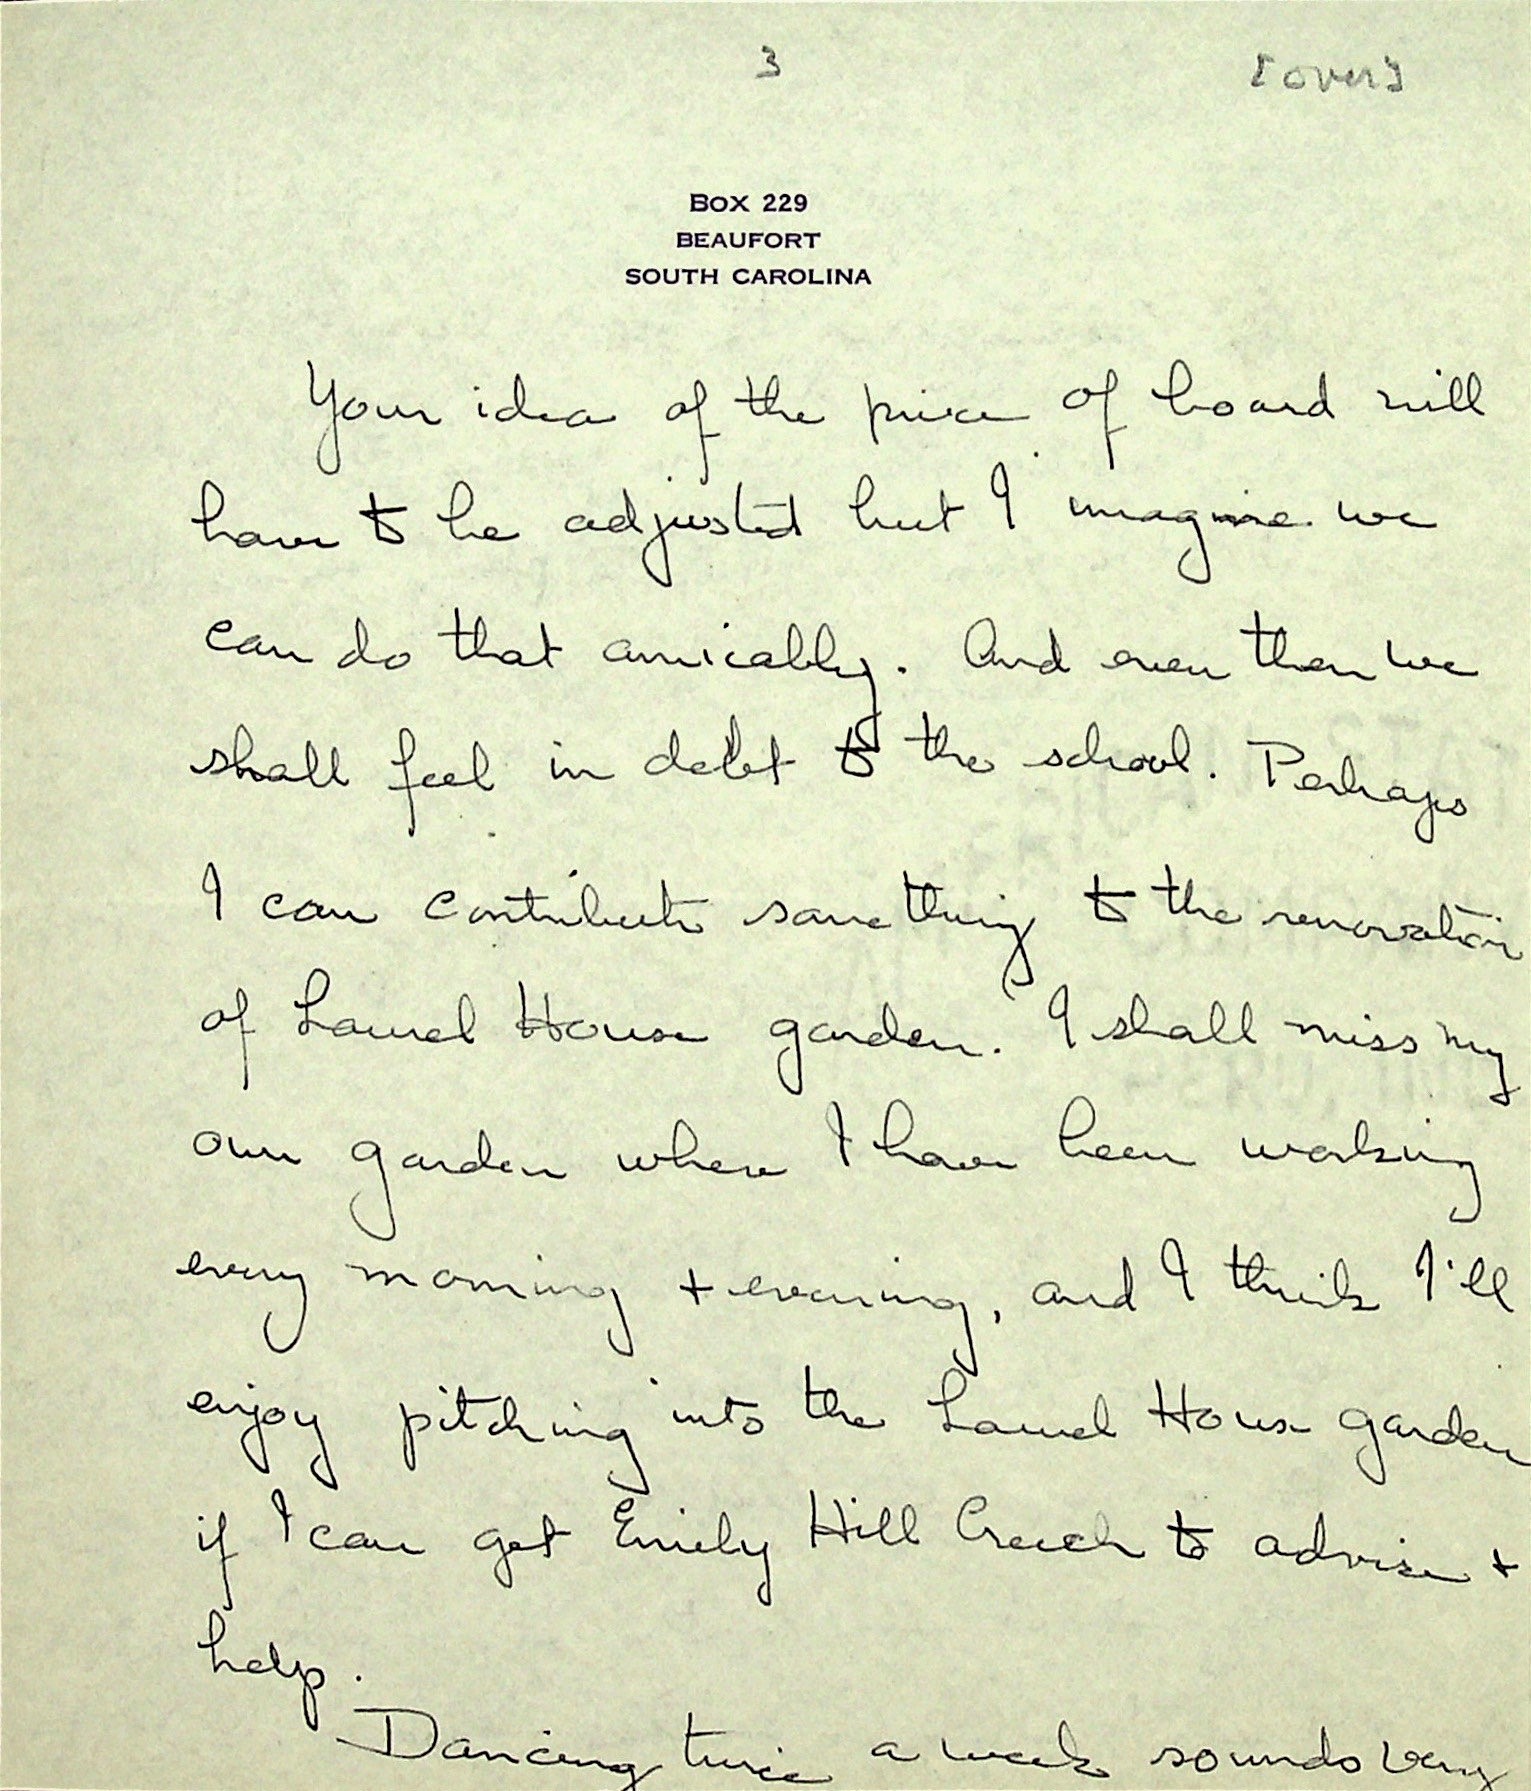 3
[over]
Box 229
BEAUFORT
SOUTH CAROLINA
Your idea of the price of board will
have to be adjusted but I imagine we
can do that amicably. And even then we
shall feel in debt to the school. Perhaps
I can contribute something to the renovation
of Laurel House garden. I shall miss my
own garden where I have been working
every morning + evening, and I think I'll
enjoy pitching into the Laurel House garden
if I can get Emily Hill Creech to advise +
help.
Dancing twice a week sounds very